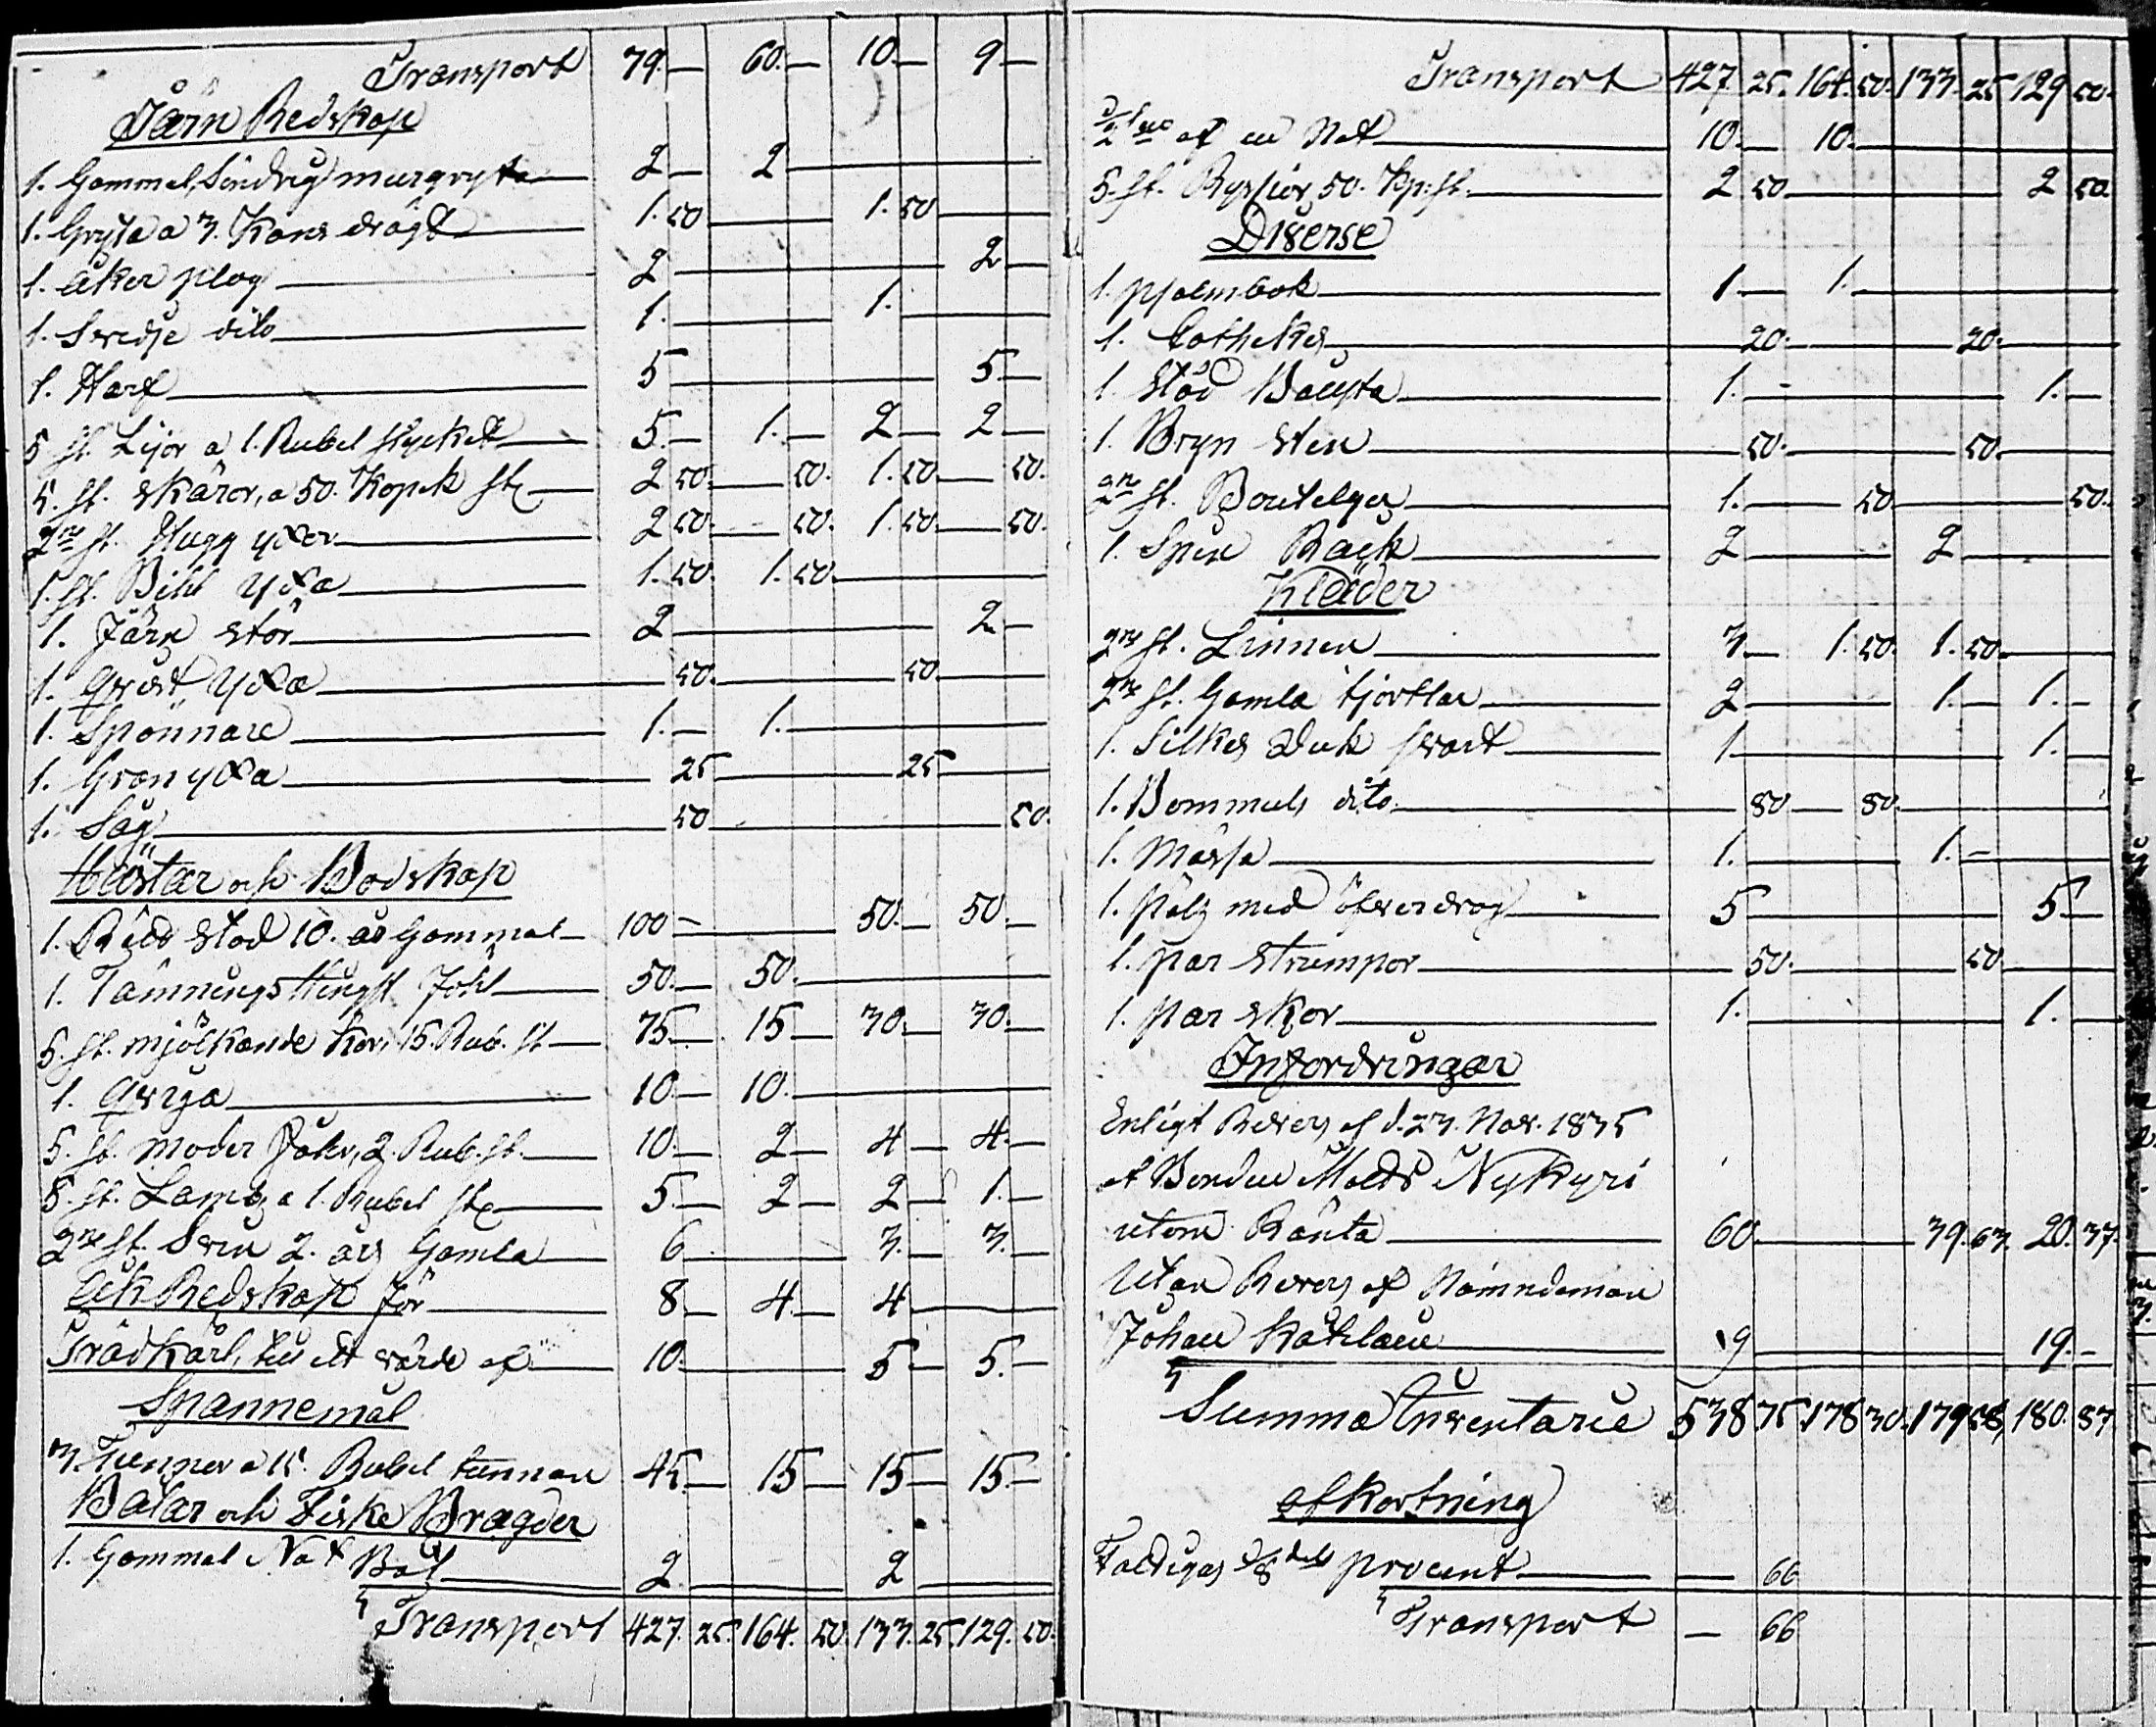 Transport 79.— 60.— 10.— 9.—
Järn Redskap
1. Gammal, Sindrig murgryta 2 — 2
1. Gryta a 3. Kans drägt 1. 50 1. 50
1. åker plog 2 2
1. Svedje dito 1. 1.
1. Harf 5 5.—
5 st. Lijor a 1. Rubel stycket 5.— 1.— 2 — 2
5. st. skäror, a 50. Kopek st. 2 50. 50. 1. 50. 50.
2ne st. Hugg yxor 2 50. 50. 1. 50. 50.
1. st. Bihl yxa 1. 50. 1. 50.
1. Järn stör 2 2 —
1. Qvist yxa 50. 50.
1. Spönnare 1.— 1.
1. Gran yxa 25 25
1. Såg 50 50.
Hästar och Bodskap
1. Rödd stod 10. år Gammal 100 — 50.— 50.—
1. Tämnings Hingst Fohl 50.— 50.
5. st. mjölkande kor, 15. Rub. st. 75.— 15 — 30.— 30.—
1. Qviga 10.— 10.
5. st. moder Fåhr, 2. Rub. st. 10.— 2 — 4 — 4.—
5. st. Lamb, a 1. Rubel st. 5.— 2 — 2 — 1.—
2ne st. Svin 2. års Gamla 6 3.— 3.—
åk Redskap för 8.— 4.— 4
Trädkärl, till ett värde af 10. 5 — 5.—
Spannemål
3. Tunnor a 15. Rubel tunnan 45.— 15 — 15 — 15 —
Båtar och Fiske Bragder
1. Gammal Not Båt 2 2
Transport 427. 25. 164. 50. 133. 25. 129. 50.
Transport 427. 25. 164. 50. 133. 25 129 50.
af en Not 10.— 10.
5. st. Ryssjor, 50. Kp: st. 2 50. 2 50
Diverse
1. psalmbok 1.— 1.
1. Cathekes 20. 20.
1. stöd 1.— 1.—
1. Bryn sten 50. 50.
2ne st. Bouteljer 1. 50. 50.
1. Spin Rack 2 2
Kläder
2ne st. Linnen 3 — 1. 50. 1. 50.
2ne st. Gamla kjortlar 2 1.— 1.—
1. Silkes Duk svart 1 1.
1. Bommuls dito 80 80.
1. mössa 1. 1.—
1. pälz med öfverdrag 5 5.—
1. par strumpor 50. 50
1. par skor 1. 1.
Infordringar
Enligt Revers af d. 23. Nov. 1835
af Bonden Matts Nykyri
utom Ränta 60. 39. 63. 20. 37.
Utan Revers af Nämndeman
Johan 19 19.—
Summa Inventarie 538 75. 178 30. 179 58, 180. 87.
afkortning
Fattigas 1/8 dels procent — 66
Transport — 66